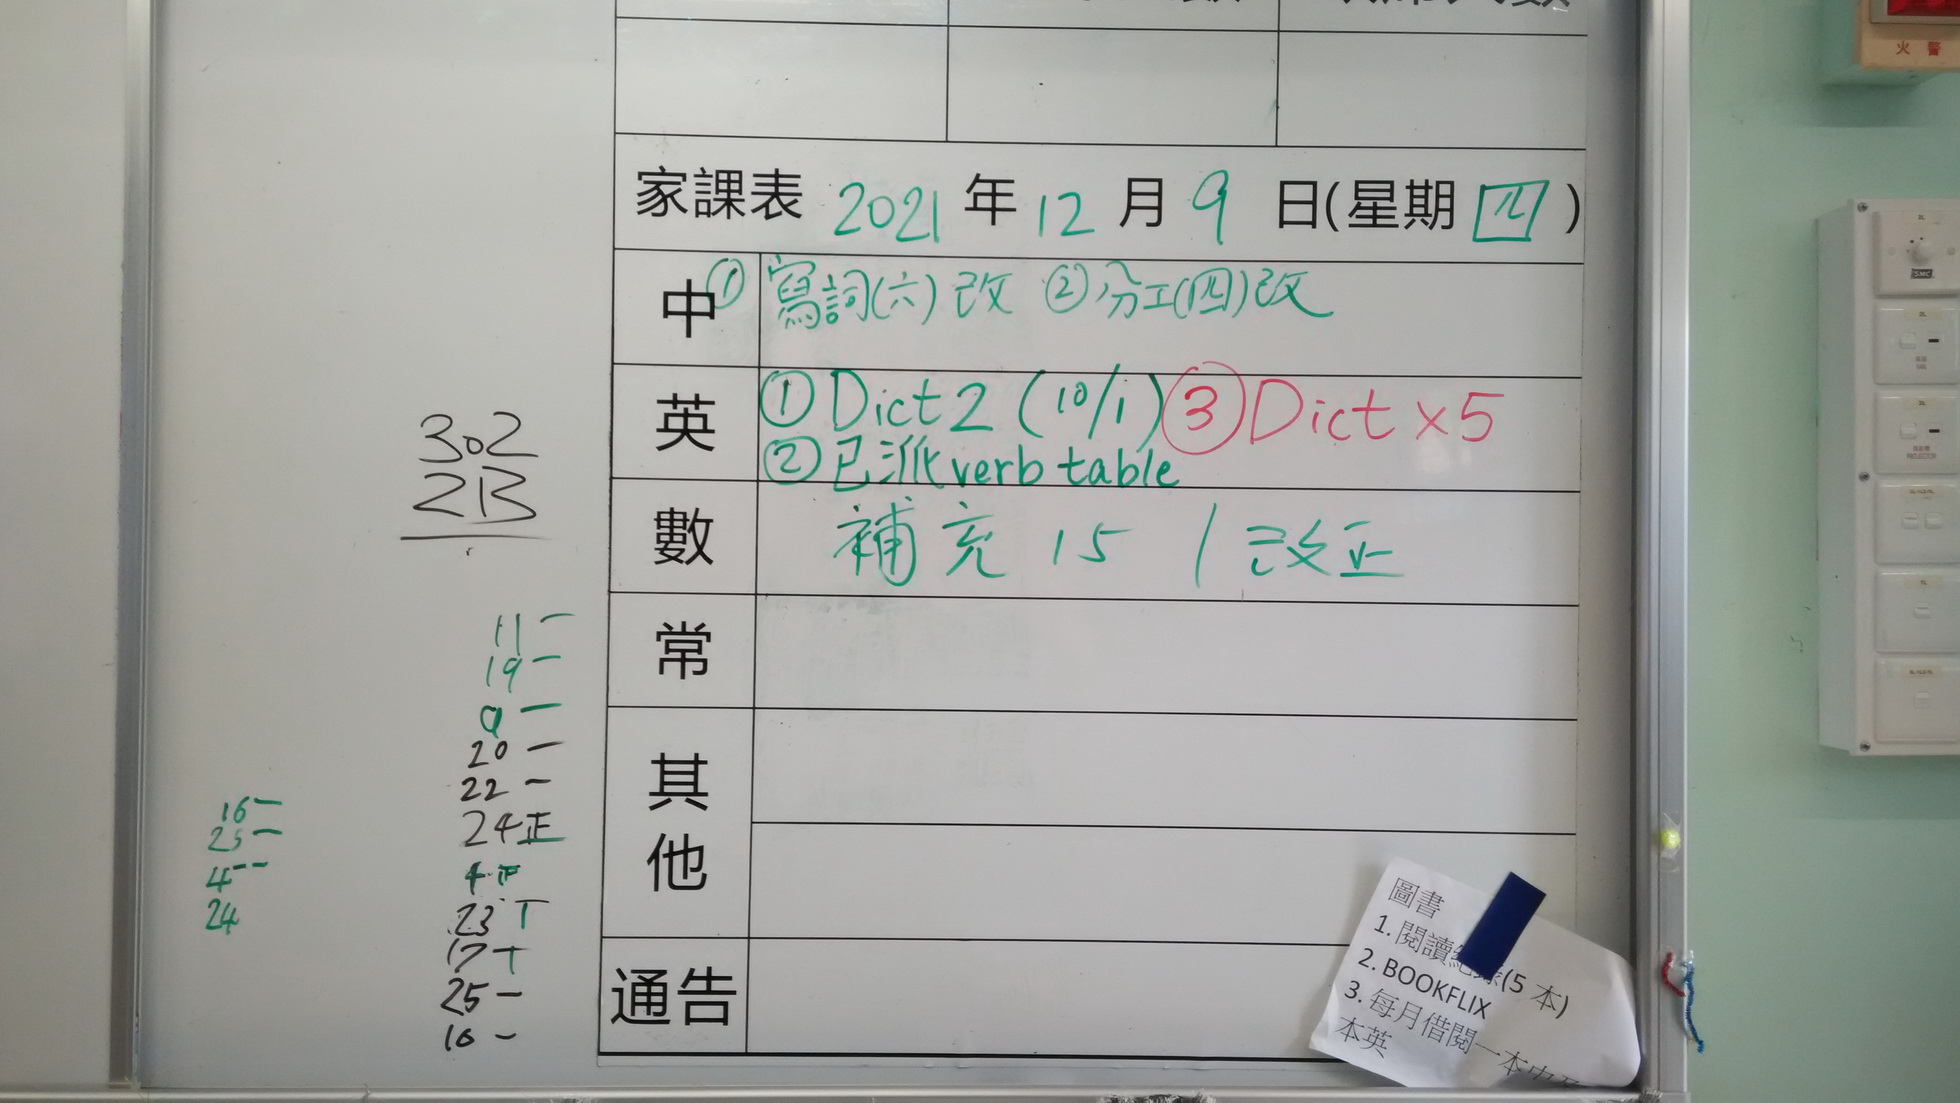 火警
家課表 2021 年 12 月 9 日(星期 四)
中 ① 寫詞(六)改 ② 分工(四)改
英 ① Dict 2 (10/1) ③ Dict ×5
② 已派 verb table
數 補充 15 / 改正
常
其他
通告
302
213
11 一
19 一
9 一
20 一
22 一
24 正
4 正
23 T
17 T
25 一
16 一
16 一
25 一
4 --
24
圖書
1. 閱讀紀錄(5 本)
2. BOOKFLIX
3. 每月借閱一本中
本英